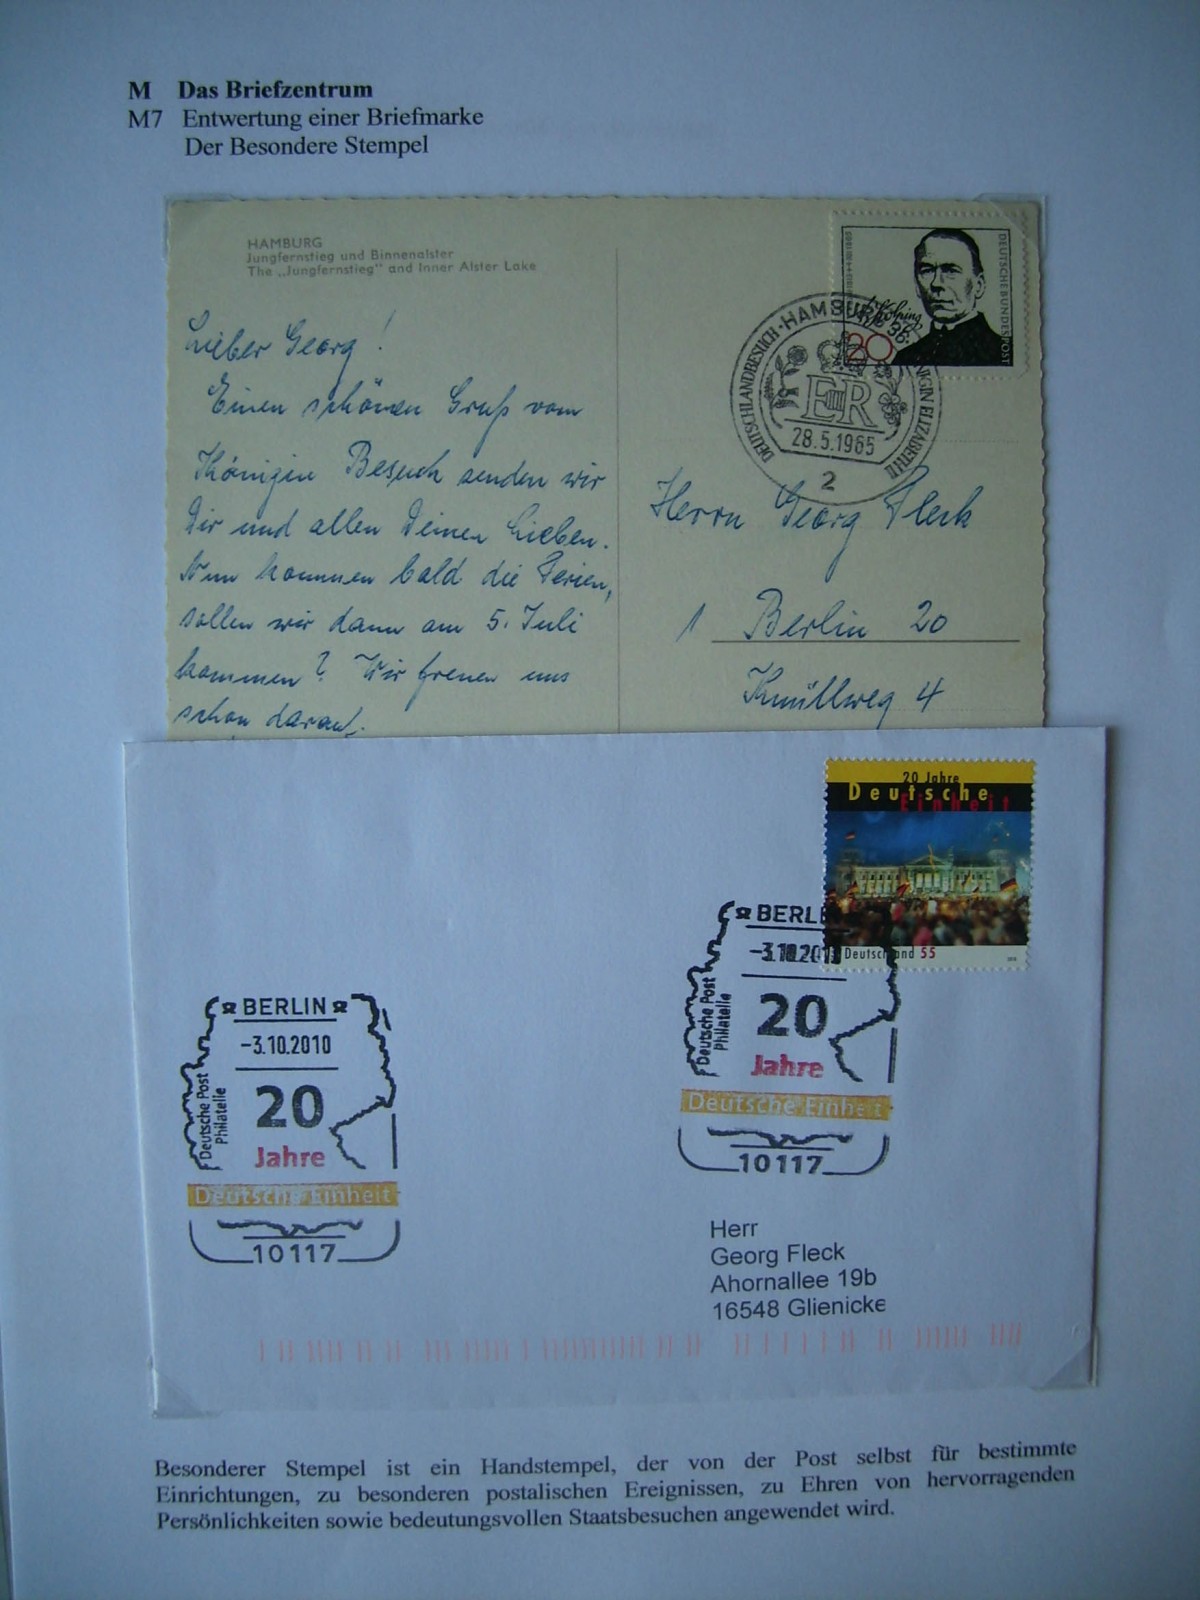 M Das Briefzentrum
M7 Entwertung einer Briefmarke
Der Besondere Stempel
HAMBURG
Jungfernstieg und Binnenalster
The „Jungfernstieg" and Inner Alster Lake
Lieber Georg!
Einen schönen Gruß vom
Königin Besuch senden wir
Dir und allen Deinen Lieben.
Nun kommen bald die Ferien,
sollen wir dann am 5. Juli
kommen? Wir freuen uns
schon darauf.
DEUTSCHE BUNDESPOST
Kolping
20
HAMBURG 36
DEUTSCHLANDBESUCH
KÖNIGIN ELIZABETH II
E II R
28.5.1965
2
Herrn Georg Fleck
1 Berlin 20
Knüllweg 4
20 Jahre
Deutsche
Einheit
Deutschland 55
BERLIN
-3.10.2010
Deutsche Post
Philatelie
20
Jahre
Deutsche Einheit
10117
BERLIN
-3.10.2010
Deutsche Post
Philatelie
20
Jahre
Deutsche Einheit
10117
Herr
Georg Fleck
Ahornallee 19b
16548 Glienicke
Besonderer Stempel ist ein Handstempel, der von der Post selbst für bestimmte
Einrichtungen, zu besonderen postalischen Ereignissen, zu Ehren von hervorragenden
Persönlichkeiten sowie bedeutungsvollen Staatsbesuchen angewendet wird.